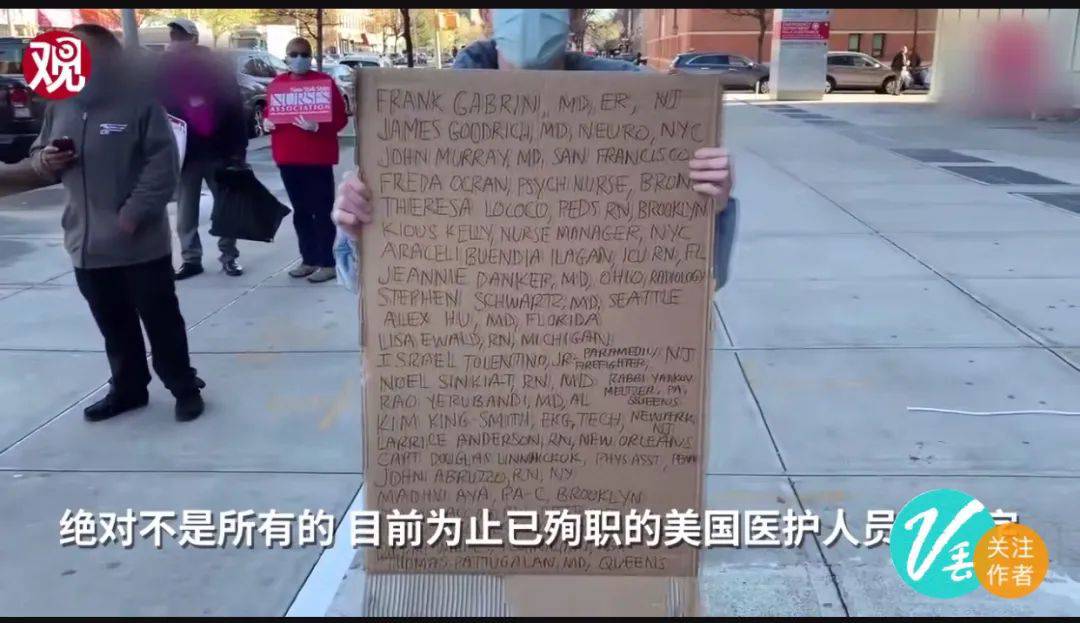 观
New York State
NURSES
ASSOCIATION
FRANK GABRINI, MD, ER, NJ
JAMES GOODRICH, MD, NEURO, NYC
JOHN MURRAY, MD, SAN FRANCISCO
FREDA OCRAN, PSYCH NURSE, BRON
THERESA LOCOCO, PEDS RN, BROOKLYN
KIOUS KELLY, NURSE MANAGER, NYC
ARACELI BUENDIA ILAGAN, ICU RN, FL
JEANNIE DANKER, MD, OHIO, RADIOLOGY
STEPHEN SCHWARTZ, MD, SEATTLE
ALEX HU, MD, FLORIDA
LISA EWALD, RN, MICHIGAN
ISRAEL TOLENTINO, JR. PARAMEDIC/ FIREFIGHTER, NJ
NOEL SINKIAT, RN, MD RABBI YANKOV MELTZER, PA, QUEENS
RAO YERUBANDI, MD, AL
KIM KING-SMITH, EKG, TECH, NEWARK, NJ
LARRICE ANDERSON, RN, NEW ORLEANS
CAPT. DOUGLAS LINN KOK, PHYS ASST, PENN
JOHN ABRUZZO, RN, NY
MADHVI AYA, PA-C, BROOKLYN
绝对不是所有的 目前为止已殉职的美国医护人员
THOMAS PATTUGALAN, MD, QUEENS
V丢
关注
作者